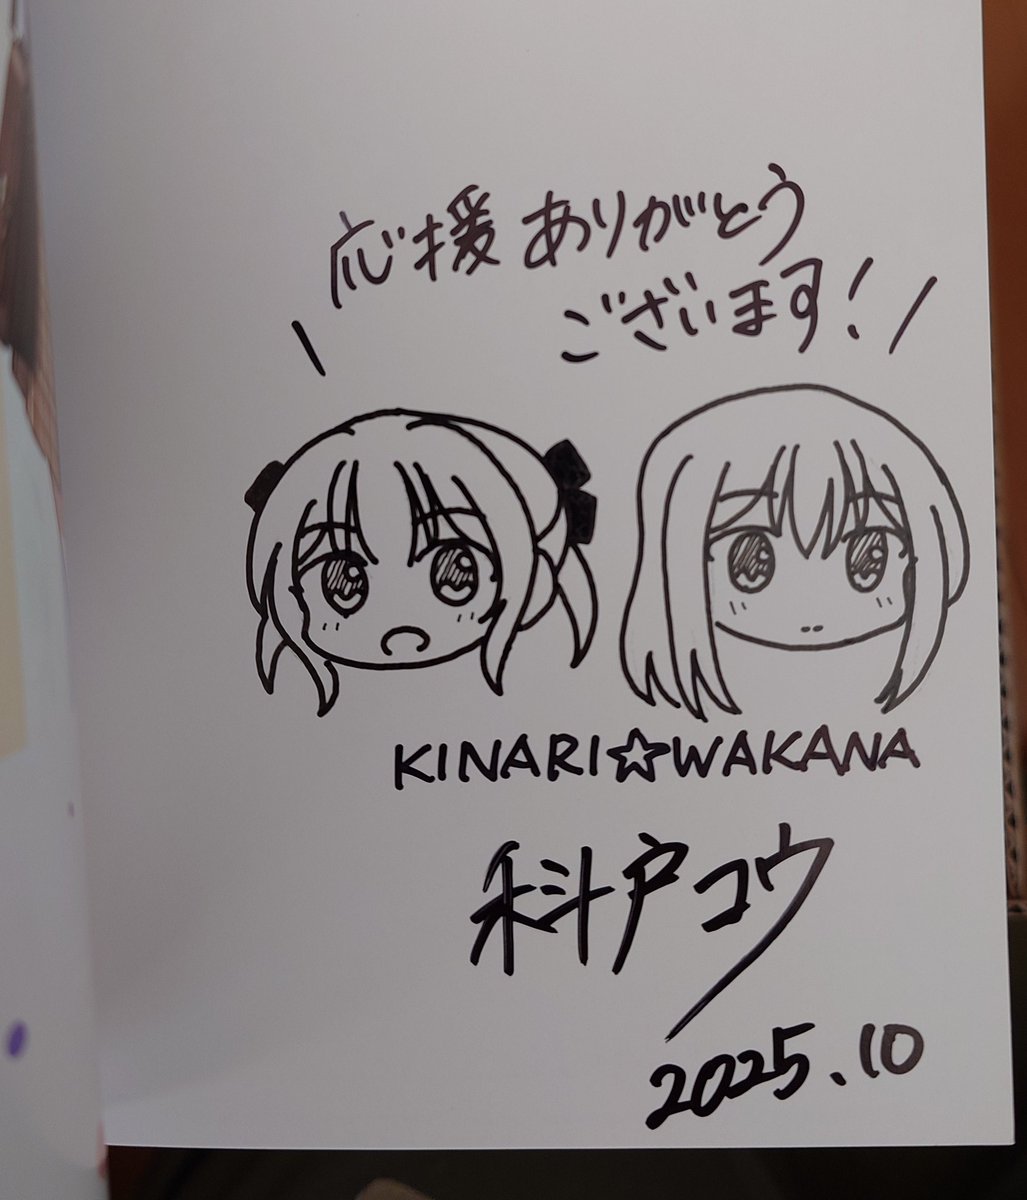 応援ありがとう
ございます!
KINARI☆WAKANA
科戸コウ
2025.10